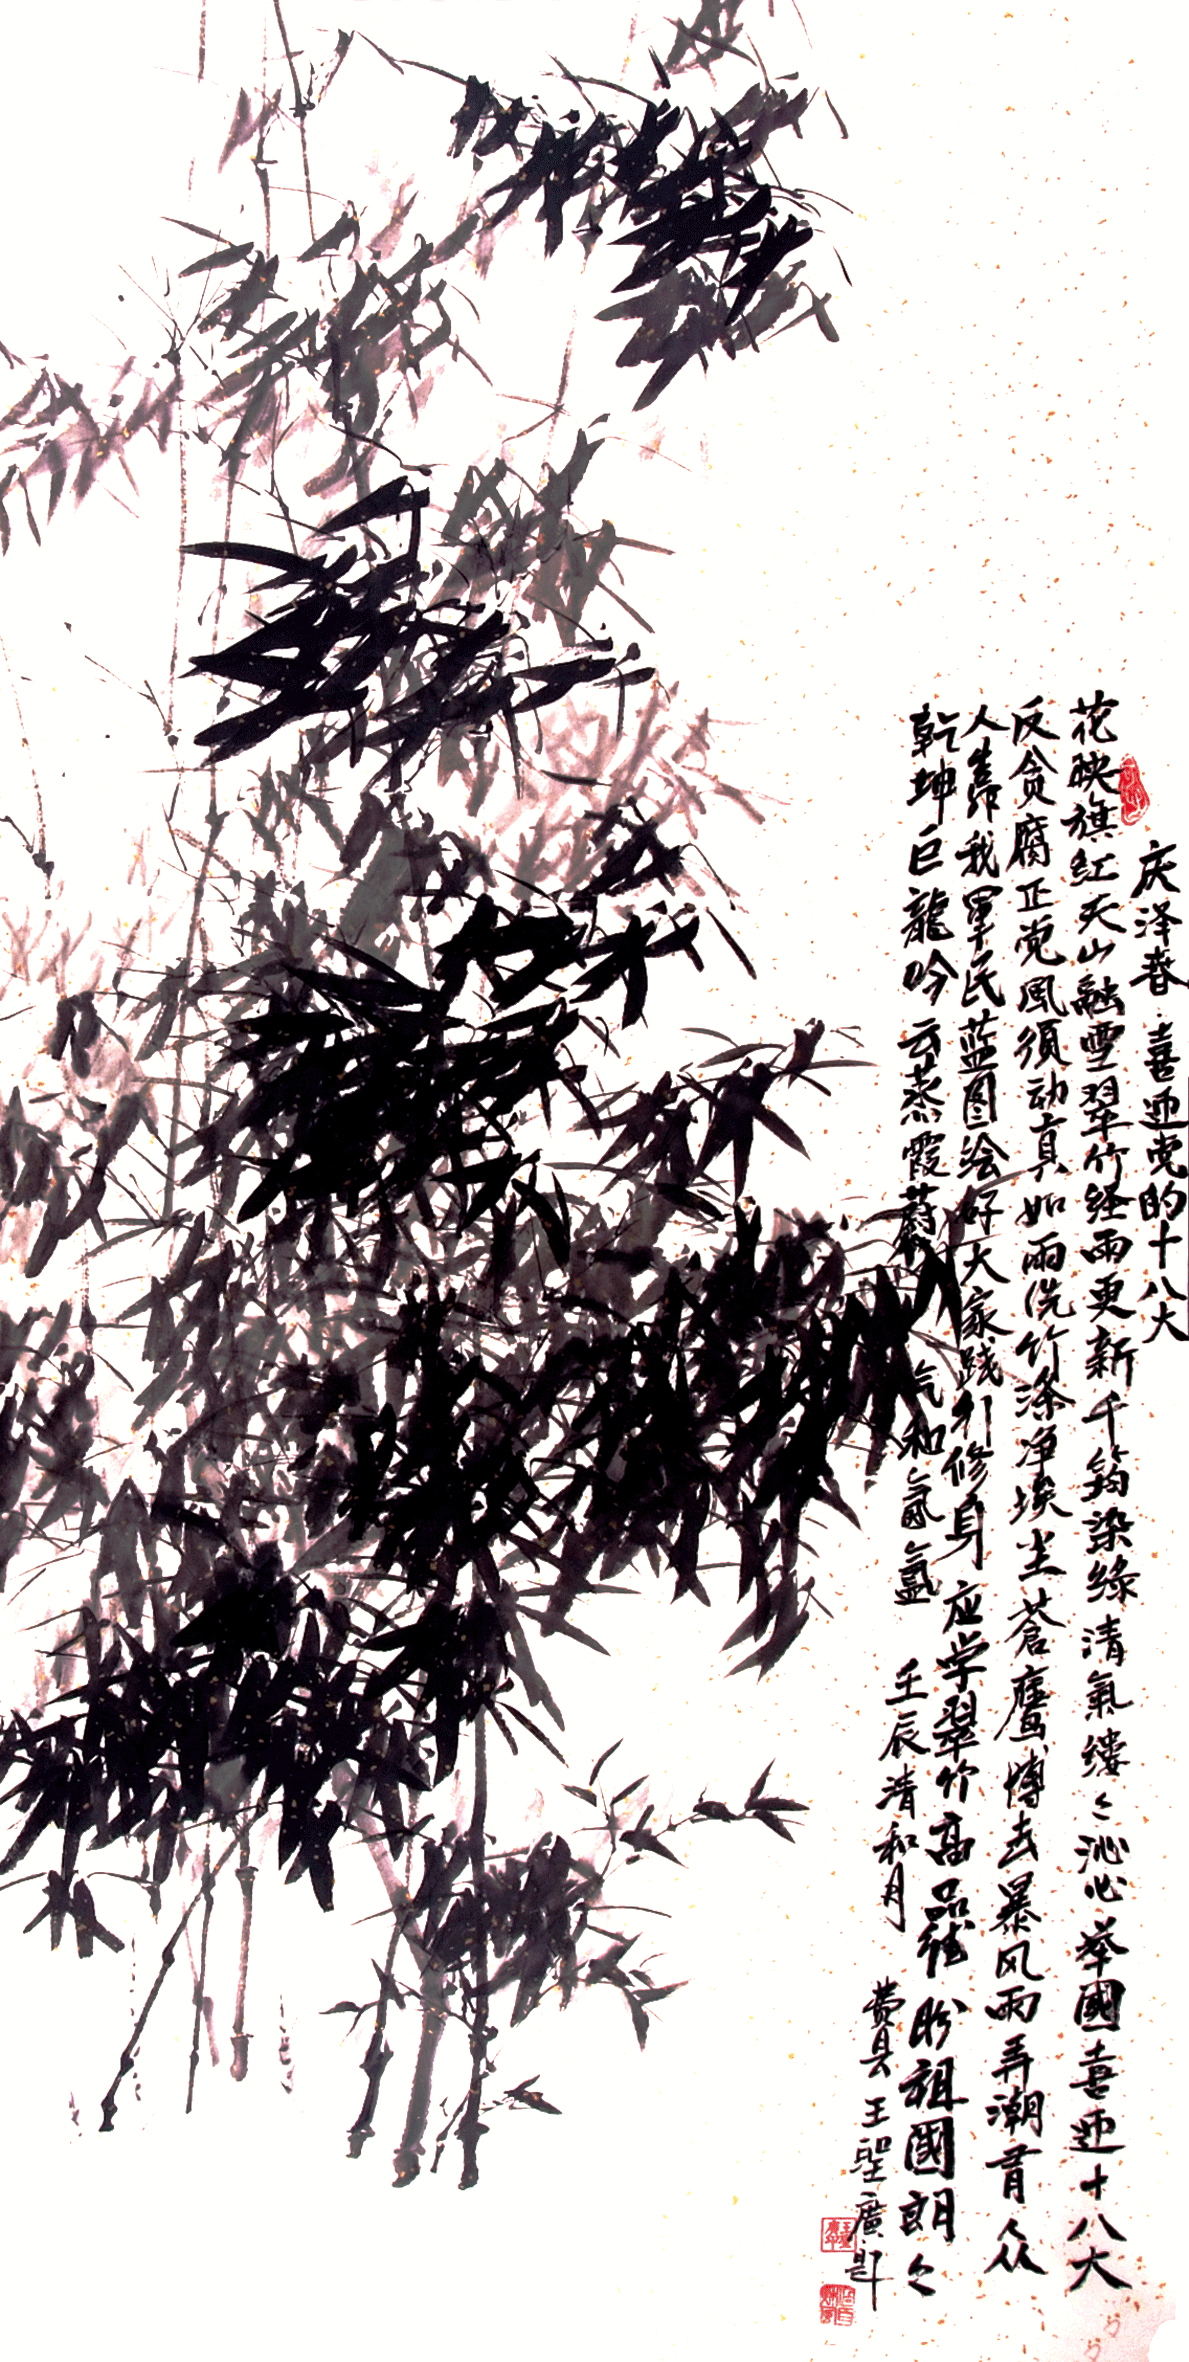 庆泽春·喜迎党的十八大
花映旗红天山融雪翠竹经雨更新千筠染绿清氣缕々沁心举國喜迎十八大
反贪腐正党风须动真如雨洗竹涤净埃尘苍鹰博击暴风雨弄潮有众
人靠我军民蓝图绘好大家践行修身应学翠竹高品德盼祖國朗々
乾坤巨龍吟云蒸霞蔚 气和氤氲 壬辰清和月
费县王聖廣题